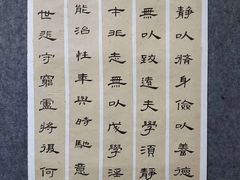 靜以脩身儉以養德
無以致遠夫學須靜
才非志無以成學淫
能治性年與時馳意
世悲守窮廬將復何